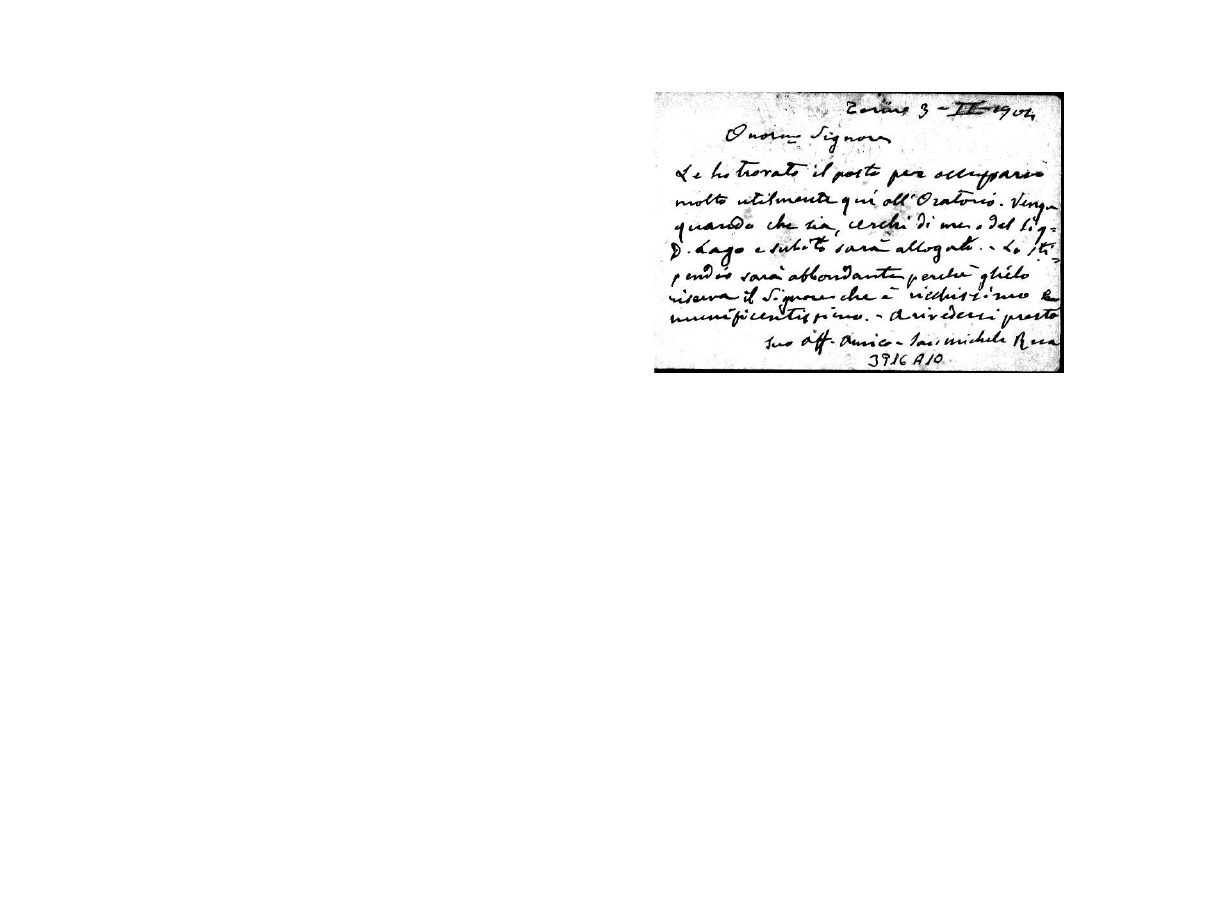 Torino 3 - II - 1904
Onorme Signore
Le ho trovato il posto per occuparsi
molto utilmente qui all'Oratorio. Venga
quando che sia, cerchi di me o del Sig-
D. Lago e subito sarà allogato. - Lo sti-
pendio sarà abbondante perchè glielo
riserva il Signore che è ricchissimo e
munificentissimo. - A rivederci presto
suo aff. amico - Sac. Michele Rua
3916 A10